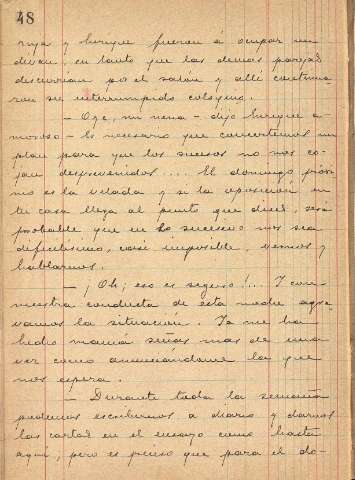 48
ruja y Enrique fueron á ocupar un
divan; en tanto que las demas parejas
discurrian por el salón y allí continua-
ron su interrumpido coloquio.
— Oye, mi nena — dijo Enrique a-
moroso — Es necesario que concertemos un
plan para que los sucesos no nos co-
jan desprevenidos.... El domingo próxi
mo es la velada y si la oposición en
tu casa llega al punto que dices, será
probable que en lo sucesivo nos sea
dificilísimo, casi imposible, vernos y
hablarnos.
— ¡Oh; eso es seguro!... Y con
nuestra conducta de esta noche agra-
vamos la situación. Ya me ha
hecho mamá señas mas de una
vez como anunciándome la que
nos espera.
— Durante toda la semana
podemos escribirnos a diario y darnos
las cartas en el ensayo como hasta
aquí, pero es preciso que para el do-